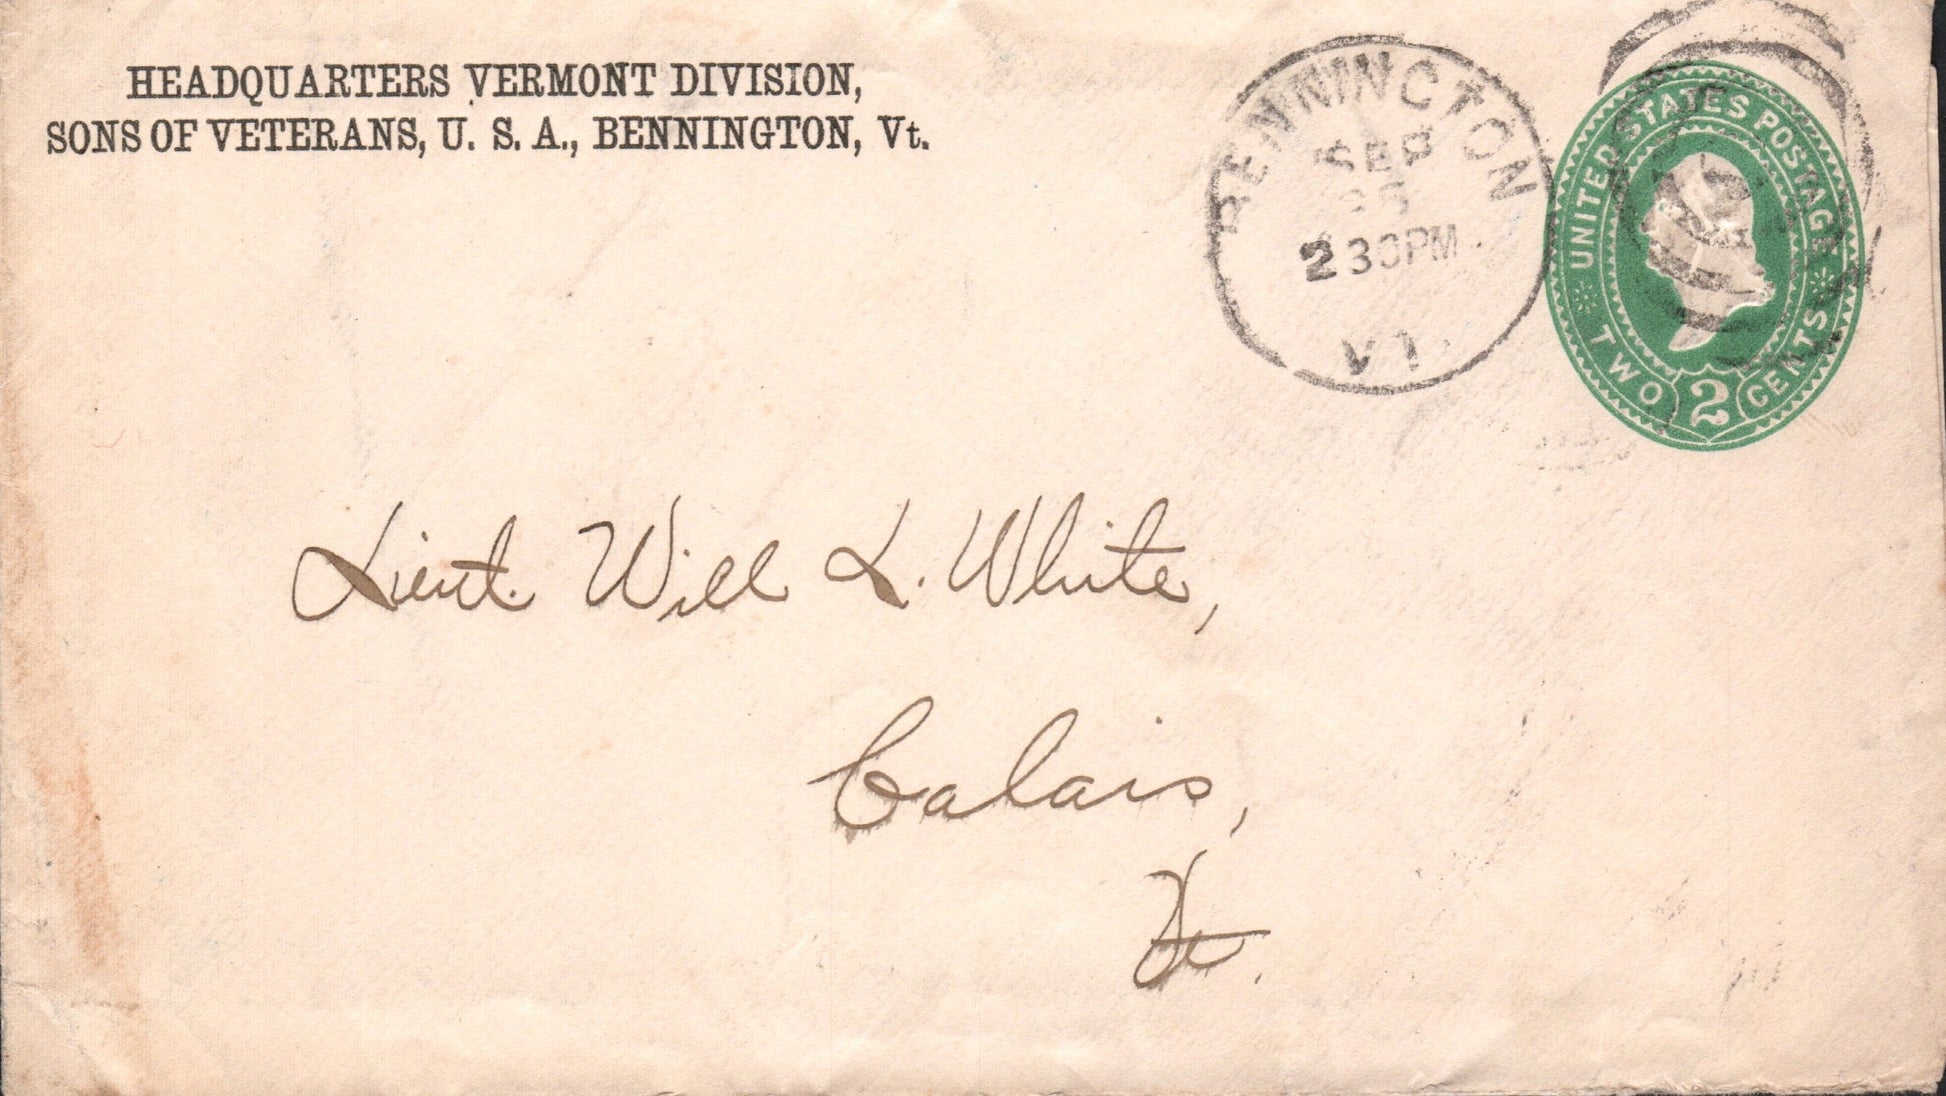 HEADQUARTERS VERMONT DIVISION,
SONS OF VETERANS, U. S. A., BENNINGTON, Vt.
BENNINGTON
SEP
2 30PM
UNITED STATES POSTAGE
TWO 2 CENTS
Lieut. Will L. White,
Calais,
Vt.